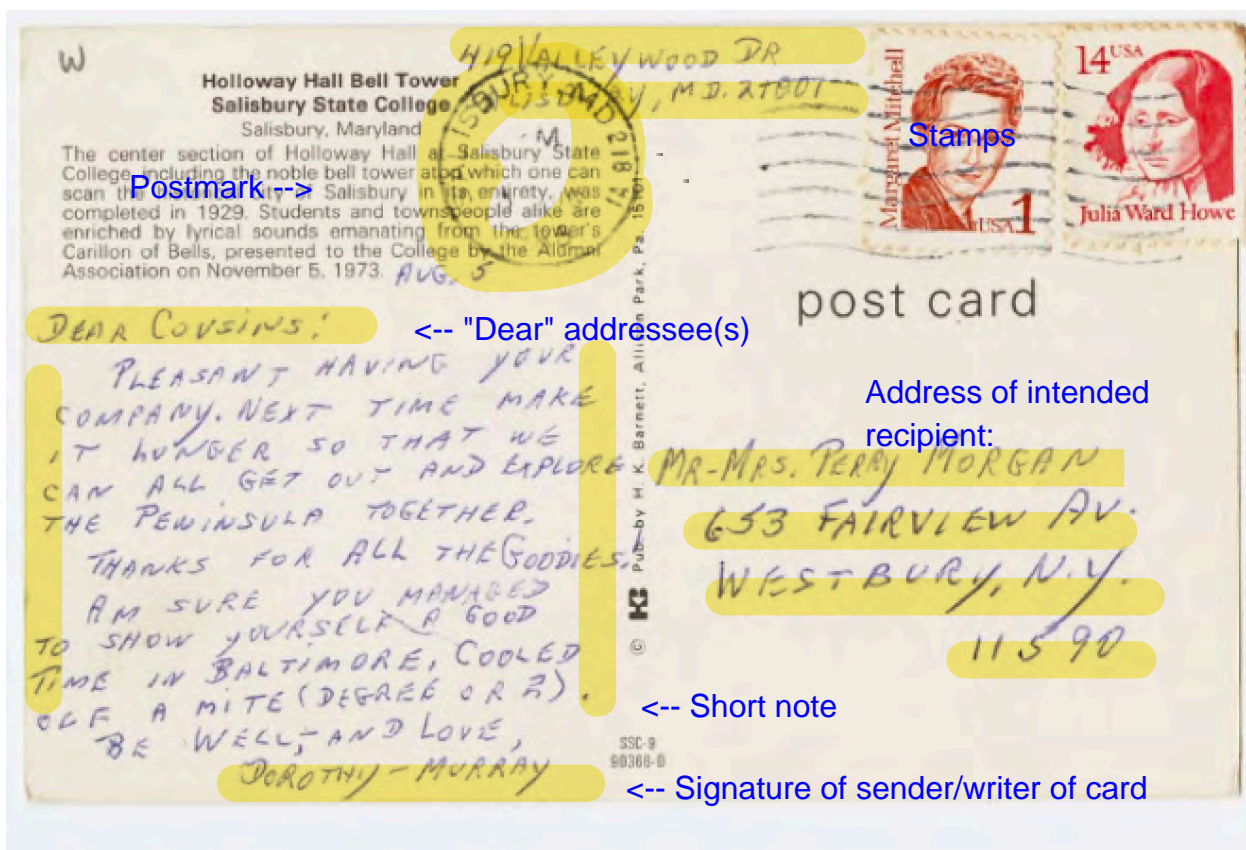 W
419 VALLEYWOOD DR
SALISBURY, M.D. 21801
Holloway Hall Bell Tower
Salisbury State College
Salisbury, Maryland
The center section of Holloway Hall at Salisbury State
College, including the noble bell tower atop which one can
scan the city of Salisbury in its entirety, was
completed in 1929. Students and townspeople alike are
enriched by lyrical sounds emanating from the tower's
Carillon of Bells, presented to the College by the Alumni
Association on November 5, 1973.
AUG. 5
Postmark -->
SALISBURY MD 21801
M
Margaret Mitchell
USA 1
14 USA
Julia Ward Howe
Stamps
post card
DEAR COUSINS!
<-- "Dear" addressee(s)
PLEASANT HAVING YOUR
COMPANY. NEXT TIME MAKE
IT LONGER SO THAT WE
CAN ALL GET OUT AND EXPLORE
THE PENINSULA TOGETHER.
THANKS FOR ALL THE GOODIES!
AM SURE YOU MANAGED
TO SHOW YOURSELF A GOOD
TIME IN BALTIMORE, COOLED
OFF A MITE (DEGREE OR 2).
BE WELL, AND LOVE,
DOROTHY - MURRAY
<-- Short note
<-- Signature of sender/writer of card
© Pub. by H. K. Barnett, Allison Park, Pa. 15101
SSC-9
90366-D
Address of intended
recipient:
MR-MRS. PERRY MORGAN
653 FAIRVIEW AV.
WESTBURY, N.Y.
11590